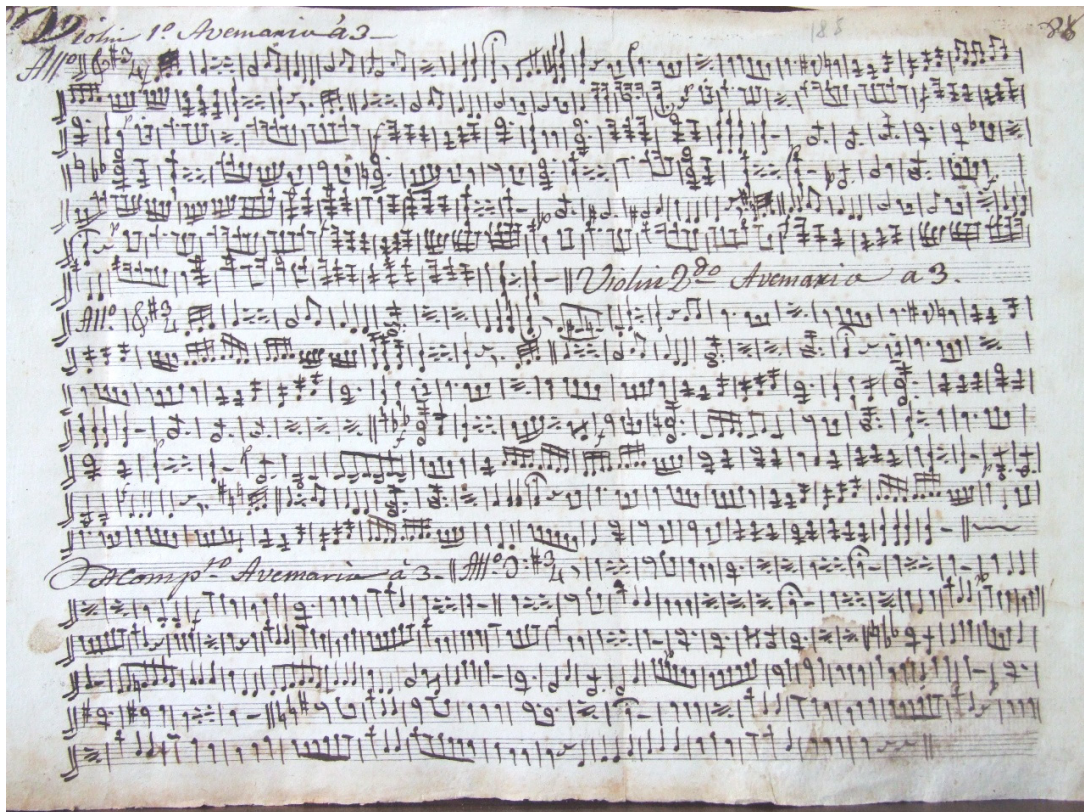 Violin 1º Avemaria à 3
All.º
Violin 2do Avemaria a 3.
All.º
Acompto Avemaria à 3 All.º